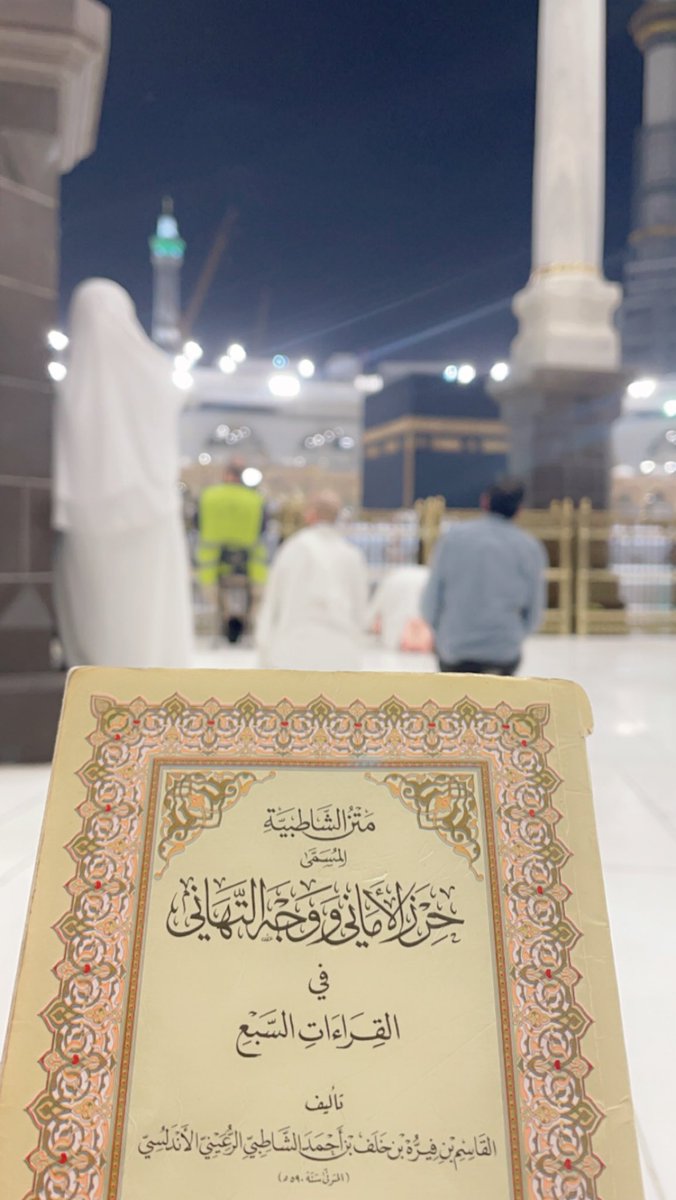 مَتْنُ الشَّاطِبِيَّة
المُسَمَّىٰ
حِرْزَ الأَمَانِي وَوَجْهَ التَّهَانِي
فِي
القِرَاءَاتِ السَّبْعِ
تأليف
القَاسِمِ بْنِ فِيرُّهْ بْنِ خَلَفِ بْنِ أَحْمَدَ الشَّاطِبِيِّ الرُّعَيْنِيِّ الأَنْدَلُسِيِّ
(المتوفَّى سَنَة ٥٩٠ هـ)